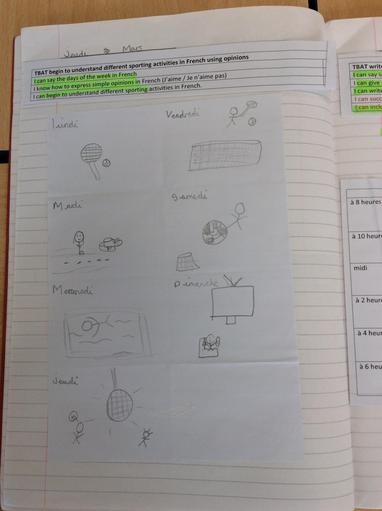 Jeudi 8 Mars
TBAT begin to understand different sporting activities in French using opinions
I can say the days of the week in French
I know how to express simple opinions in French (J'aime / Je n'aime pas)
I can begin to understand different sporting activities in French.
lundi
Vendredi
Mardi
Samedi
Mercredi
Dimanche
Jeudi
TBAT write
I can say
I can give
I can write
I can
I can
à 8 heures
à 10 heur
midi
à 2 heur
à 4 heur
à 6 heu